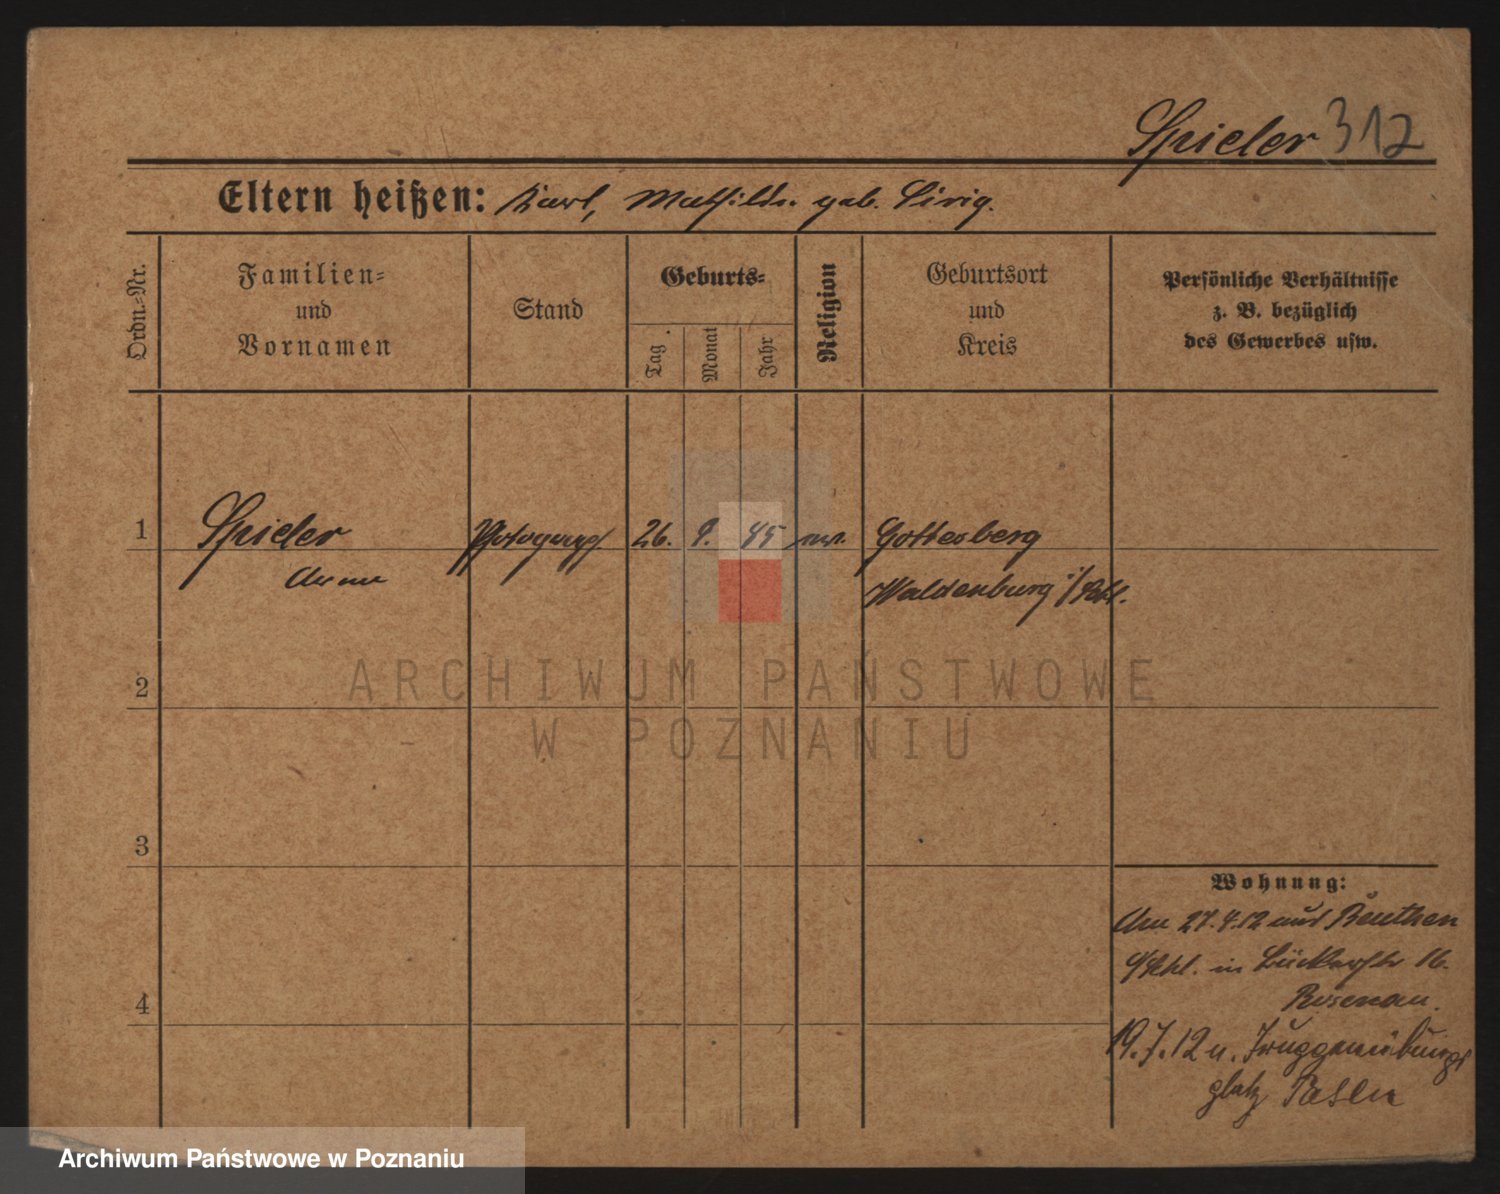 Spieler 312
Eltern heißen: Karl, Mathilde geb.
Ordn.-Nr.
Familien-
und
Vornamen
Stand
Geburts-
Tag
Monat
Jahr
Religion
Geburtsort
und
Kreis
Persönliche Verhältnisse
z. B. bezüglich
des Gewerbes usw.
1
Spieler
Photograph
26. 9. 45
Gottesberg
Waldenburg i/Schl.
2
ARCHIWUM PAŃSTWOWE
W POZNANIU
3
Wohnung:
27.4.12 aus Beuthen
in 16.
4
Rosenau.
19.7.12 n. Truppenübungs
platz Posen
Archiwum Państwowe w Poznaniu